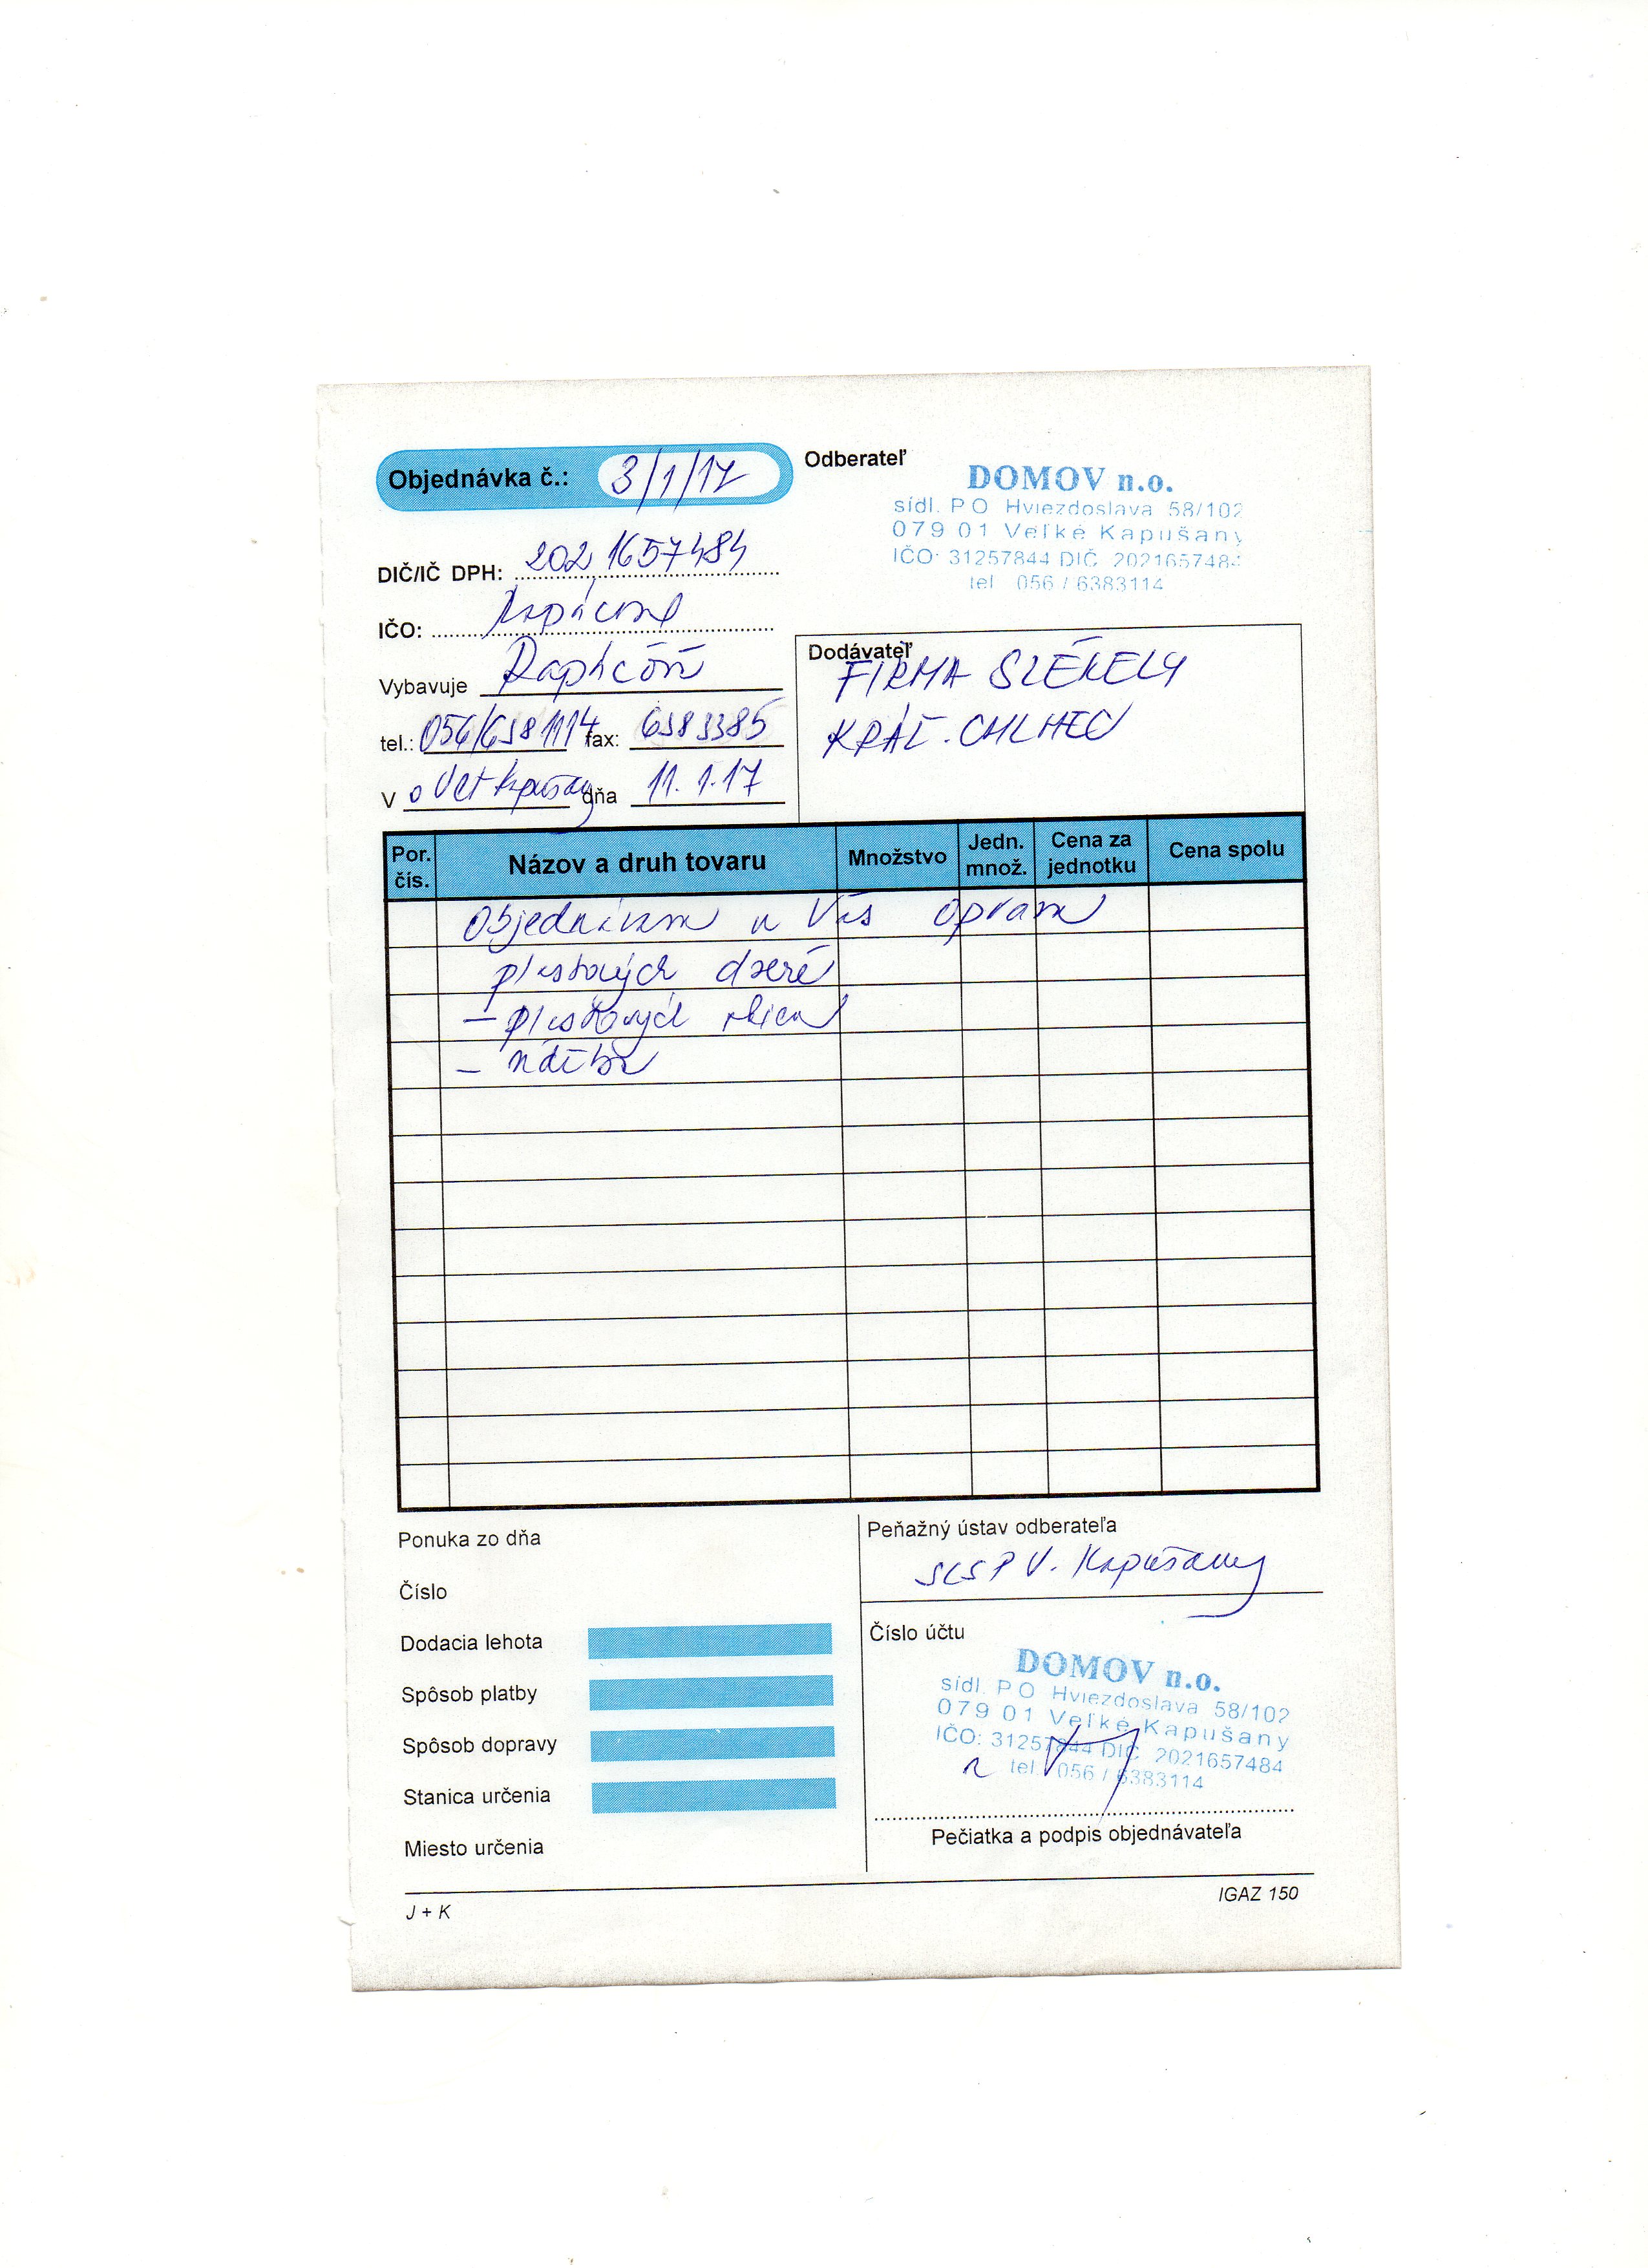 Objednávka č.: 3/1/17
Odberateľ
DOMOV n.o.
sídl. PO Hviezdoslava 58/102
079 01 Veľké Kapušany
IČO: 31257844 DIČ 2021657484
tel 056 / 6383114
DIČ/IČ DPH: 2021657484
IČO:
Vybavuje
tel.: 056/6381114 fax: 6383385
V dňa 11.1.17
Dodávateľ
FIRMA SZÉKELY
KRÁĽ. CHLMEC
Por. čís.
Názov a druh tovaru
Množstvo
Jedn. množ.
Cena za jednotku
Cena spolu
Objednávam u Vás opravu
plastových dverí
- plastových okien
Ponuka zo dňa
Číslo
Dodacia lehota
Spôsob platby
Spôsob dopravy
Stanica určenia
Miesto určenia
Peňažný ústav odberateľa
SLSP V. Kapušany
Číslo účtu
DOMOV n.o.
sídl. PO Hviezdoslava 58/102
079 01 Veľké Kapušany
IČO: 31257844 DIČ 2021657484
tel. 056 / 6383114
Pečiatka a podpis objednávateľa
J + K
IGAZ 150